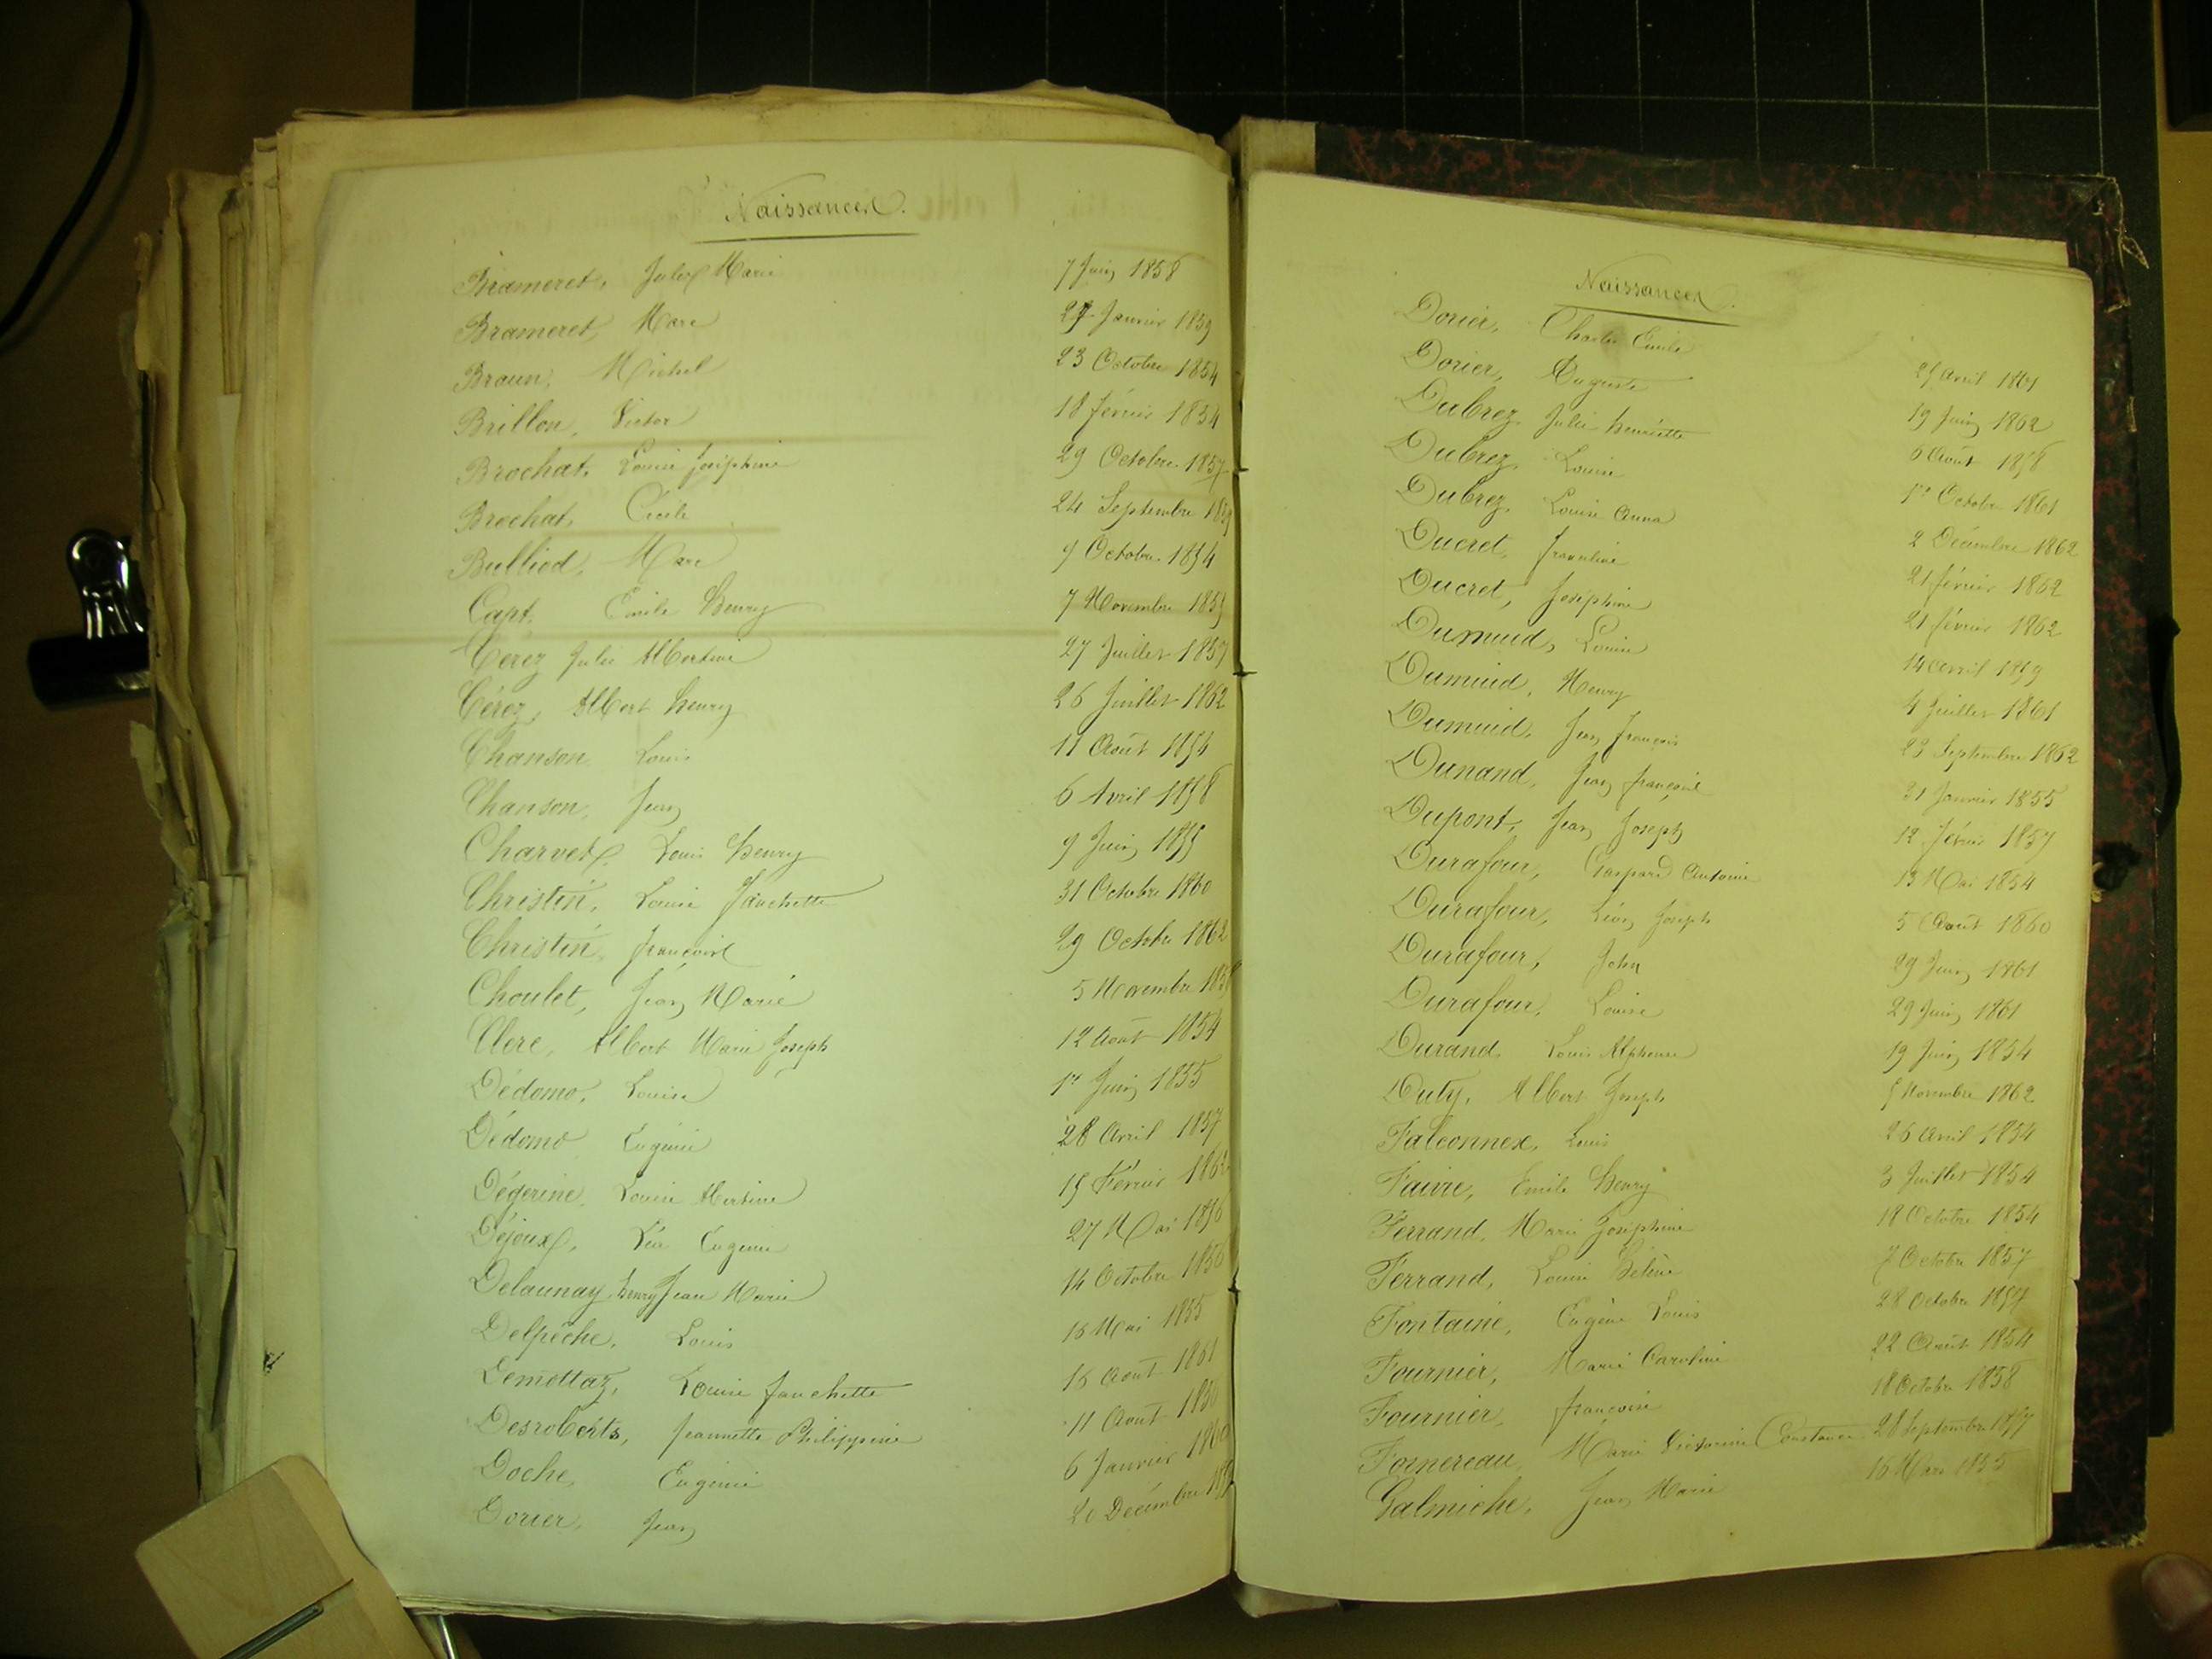 Naissances.
Brameret, Jules Marie 7 Juin 1858
Brameret, Marc 27 Janvier 1859
Braun, Michel 23 Octobre 1854
Brillon, Victor 18 février 1854
Brochat, Louise Joséphine 29 Octobre 1857
Brochat, Cécile 24 Septembre
Bulliod, Marc 9 Octobre 1854
Capt, Emile Henry 7 Novembre
Cérez Julie Albertine 27 Juillet 1857
Cérez, Albert Henry 26 Juillet 1862
Chanson Louis 11 Août 1854
Chanson, Jean 6 Avril 1858
Charvet, Louis Henry 9 Juin 1855
Christin, Louise Fanchette 31 Octobre 1860
Christin, François 29 Octobre 1862
Choulet, Jean Marie 5 Novembre
Clerc, Albert Marie Joseph 12 Août 1854
Dédomo, Louise 1er Juin 1855
Dédomo Eugénie 28 Avril 1857
Dégerine, Louise Albertine 15 Février
Déjoux, Léa Eugénie 27 Mai 1856
Delaunay, Henry Jean Marie 14 Octobre
Delpêche, Louis 16 Mai 1855
Demottaz, Louise Fanchette 16 Août 1861
Desroberts, Jeannette Philippine 11 Août
Doche, Eugénie 6 Janvier 1860
Dorier, Jean 20 Décembre
Naissances.
Dorier, Charles Emile 25 Avril 1861
Dorier, Auguste 19 Juin 1862
Dubrez, Julie Henriette 6 Août 1858
Dubrez, Louise 1er Octobre 1861
Dubrez, Louise Anna 2 Décembre 1862
Ducret, Francline 21 février 1862
Ducret, Joséphine 21 février 1862
Dumuid, Louise 14 Avril 1859
Dumuid, Henry 4 Juillet 1861
Dumuid, Jean François 23 Septembre 1862
Dunand, Jean François 31 Janvier 1855
Dupont, Jean Joseph 12 Février 1857
Durafour, Gaspard Antoine 13 Mai 1854
Durafour, Léon Joseph 5 Août 1860
Durafour, John 29 Juin 1861
Durafour, Louise 29 Juin 1861
Durand, Louis Alphonse 19 Juin 1854
Duty, Albert Joseph 5 Novembre 1862
Falconnex, Louis 26 Avril 1854
Faivre, Emile Henry 3 Juillet 1854
Ferrand, Marie Joséphine 18 Octobre 1854
Ferrand, Louise Hélène 7 Octobre 1857
Fontaine, Eugène Louis 28 Octobre 1857
Fournier, Marie Caroline 22 Août 1854
Fournier, Françoise 18 Octobre 1858
Fornereau, Marie Victorine Constance 28 Septembre 1857
Galmiche, Jean Marie 16 Mars 1855